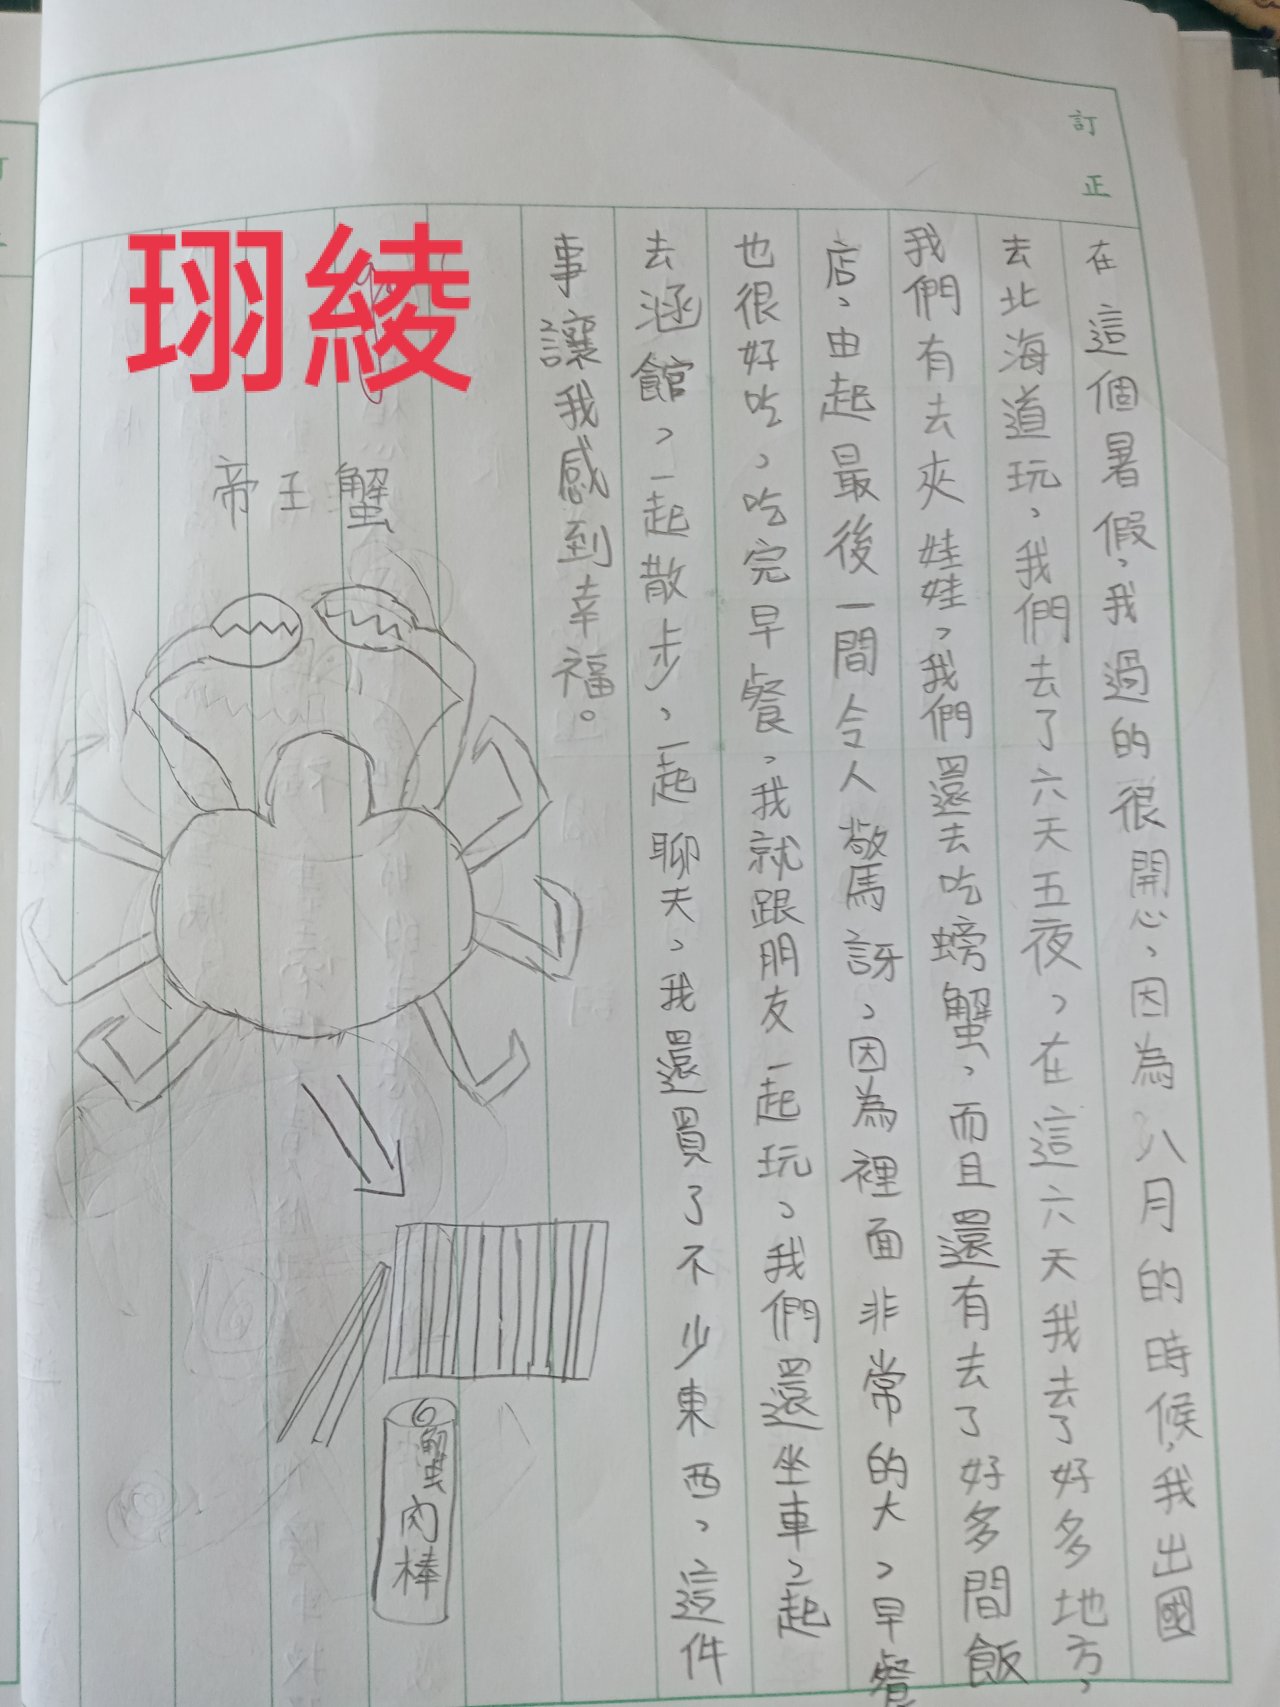 訂正
在這個暑假，我過的很開心，因為八月的時候，我出國
去北海道玩，我們去了六天五夜，在這六天我去了好多地方，
我們有去夾娃娃，我們還去吃螃蟹，而且還有去了好多間飯
店，由起最後一間令人敬馬訝，因為裡面非常的大，早餐
也很好吃，吃完早餐，我就跟朋友一起玩，我們還坐車一起
去涵館，一起散步，一起聊天，我還買了不少東西，這件
事讓我感到幸福。
珝綾
帝王蟹
蟹肉棒